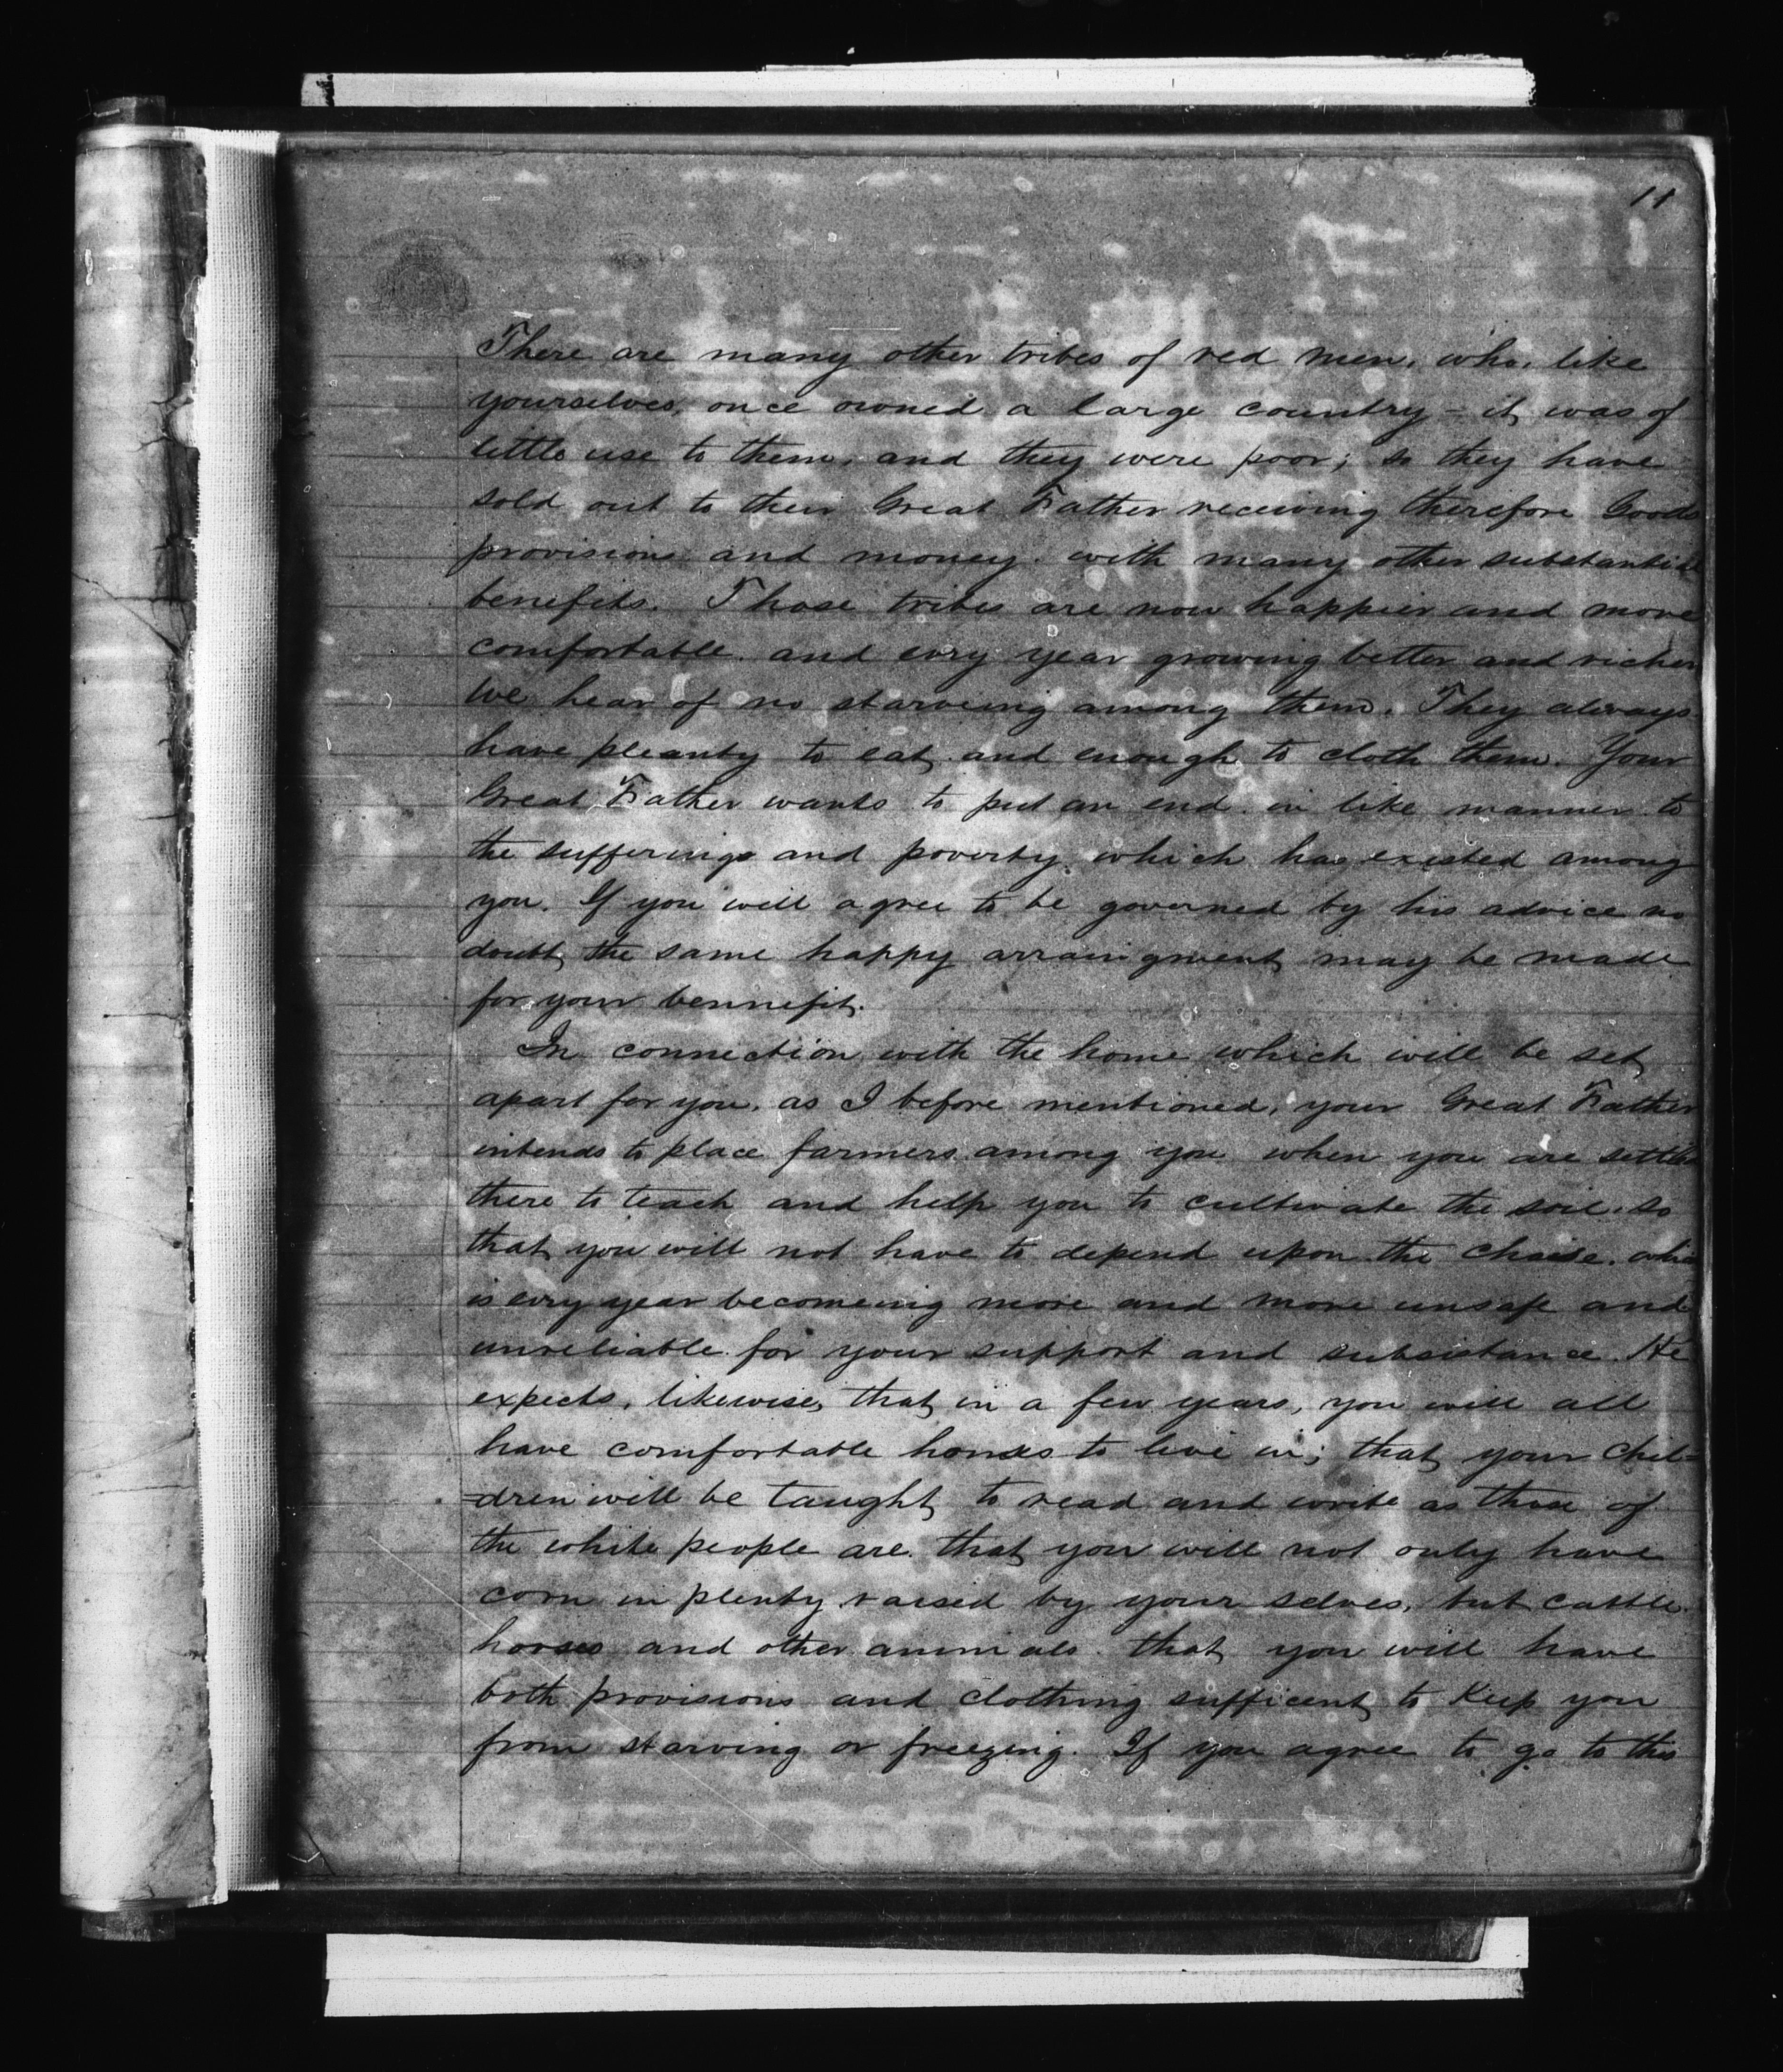 11
There are many other tribes of red men, who, like
yourselves, once owned a large country - it was of
little use to them, and they were poor; so they have
sold out to their Great Father receiving therefore Goods
provisions and money. with many other substantial
benefits. Those tribes are now happier and more
comfortable. and evry year growing better and richer
we hear of no starveing among them. They always
have pleanty to eat and enough to cloth them. Your
Great Father wants to put an end in like manner to
the sufferings and poverty which has existed among
you. If you will agree to be governed by his advice no
doubt the same happy arraingment may be made
for your bennefit.
In connection with the home which will be set
apart for you, as I before mentioned, your Great Father
intends to place farmers among you when you are settled
there to teach and help you to cultivate the soil, so
that you will not have to depend upon the chaise. which
is evry year becomeing more and more unsafe and
unreliable for your support and subsistance. He
expects, likewise, that in a few years, you will all
have comfortable homes to live in; that your chil=
=dren will be taught to read and write as those of
the white people are. that you will not only have
corn in plenty raised by your selves, but cattle.
horses and other animals. that you will have
both provisions and clothing sufficent to Keep you
from starving or freezing. If you agree to go to this